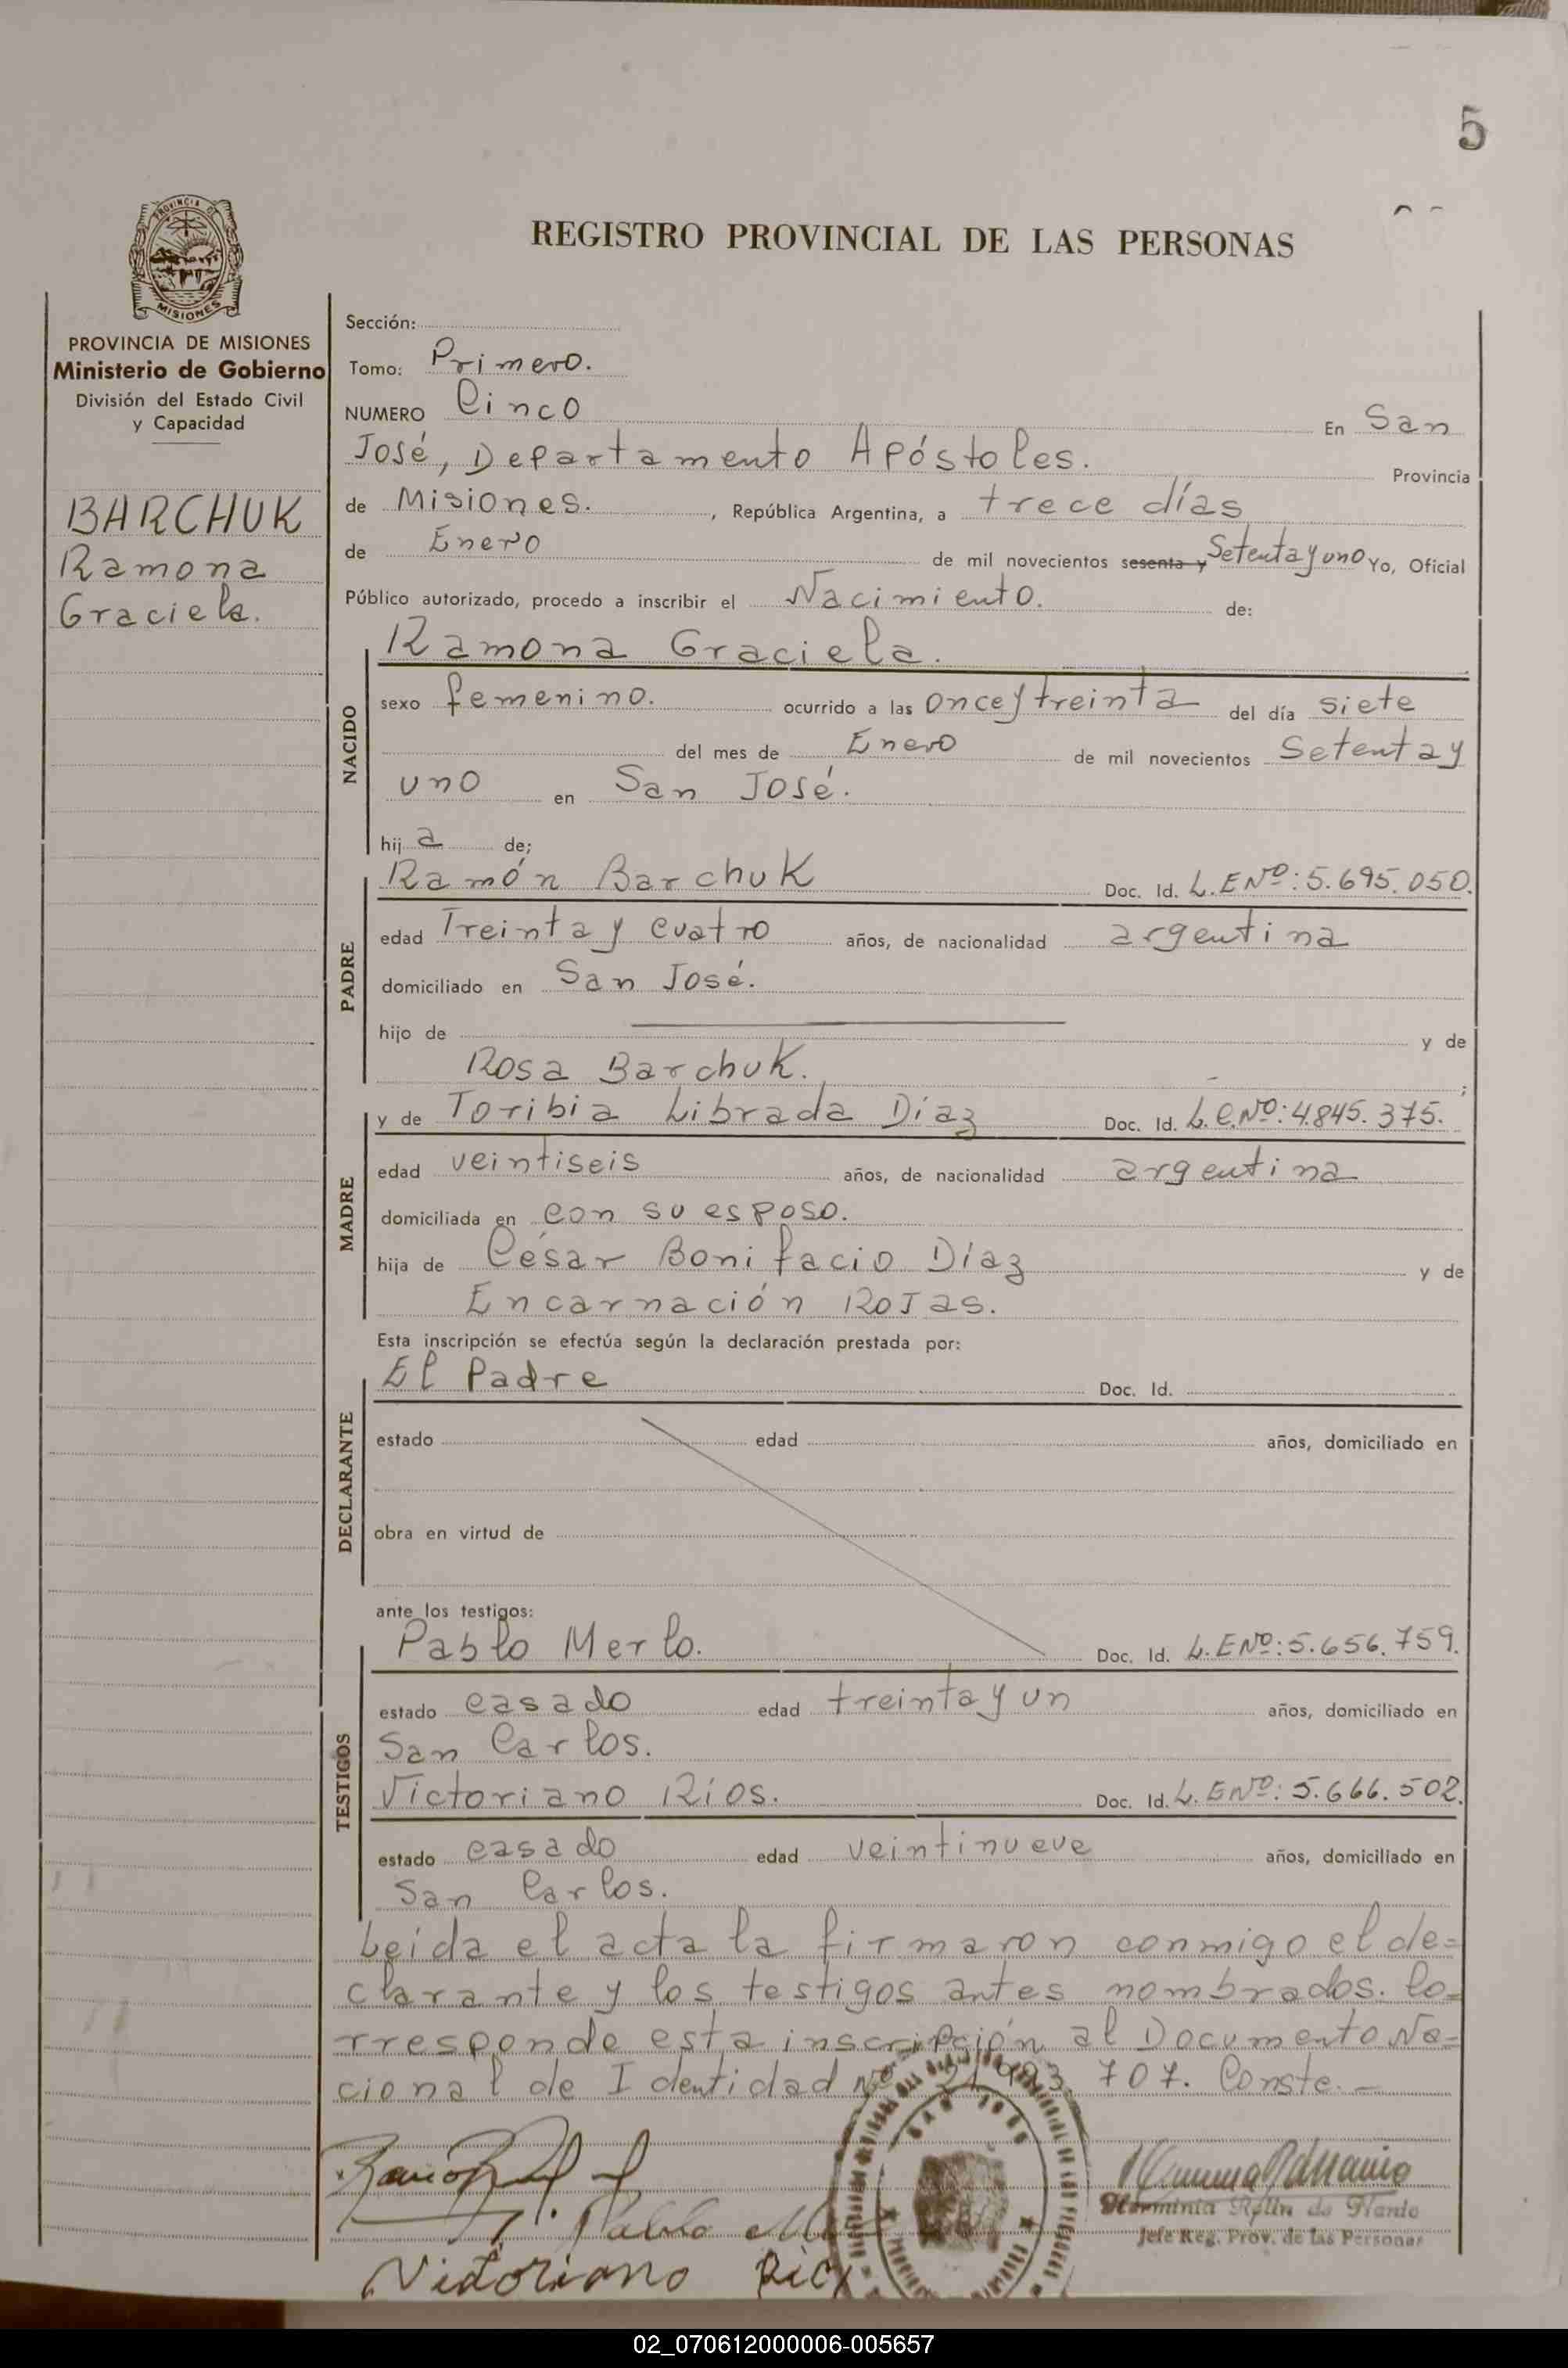 5
REGISTRO PROVINCIAL DE LAS PERSONAS
PROVINCIA DE
MISIONES
PROVINCIA DE MISIONES
Ministerio de Gobierno
División del Estado Civil
y Capacidad
BARCHUK
Ramona
Graciela.
Sección:
Tomo: Primero.
NUMERO Cinco En San
José, Departamento Apóstoles. Provincia
de Misiones. , República Argentina, a trece días
de Enero de mil novecientos sesenta y Setenta y uno Yo, Oficial
Público autorizado, procedo a inscribir el Nacimiento. de:
NACIDO
Ramona Graciela.
sexo femenino. ocurrido a las once y treinta del día siete
del mes de Enero de mil novecientos Setenta y
uno en San José.
hij a de;
PADRE
Ramón Barchuk Doc. Id. L.E Nº: 5.695.050.
edad Treinta y cuatro años, de nacionalidad argentina
domiciliado en San José.
hijo de y de
Rosa Barchuk. ;
MADRE
y de Toribia Librada Díaz Doc. Id. L.C.Nº: 4.845.375.
edad veintiseis años, de nacionalidad argentina
domiciliada en con su esposo.
hija de César Bonifacio Díaz y de
Encarnación Rojas.
Esta inscripción se efectúa según la declaración prestada por:
DECLARANTE
El Padre Doc. Id.
estado edad años, domiciliado en
obra en virtud de
ante los testigos:
TESTIGOS
Pablo Merlo. Doc. Id. L.E Nº: 5.656.759.
estado casado edad treinta y un años, domiciliado en
San Carlos.
Victoriano Ríos. Doc. Id. L.E Nº: 5.666.502.
estado casado edad veintinueve años, domiciliado en
San Carlos.
Leída el acta la firmaron conmigo el de=
clarante y los testigos antes nombrados. Co=
rresponde esta inscripción al Documento Na=
cional de Identidad Nº 707. Conste.-
Pablo
Victoriano
Herminia de
Jefe Reg. Prov. de las Personas
02_070612000006-005657